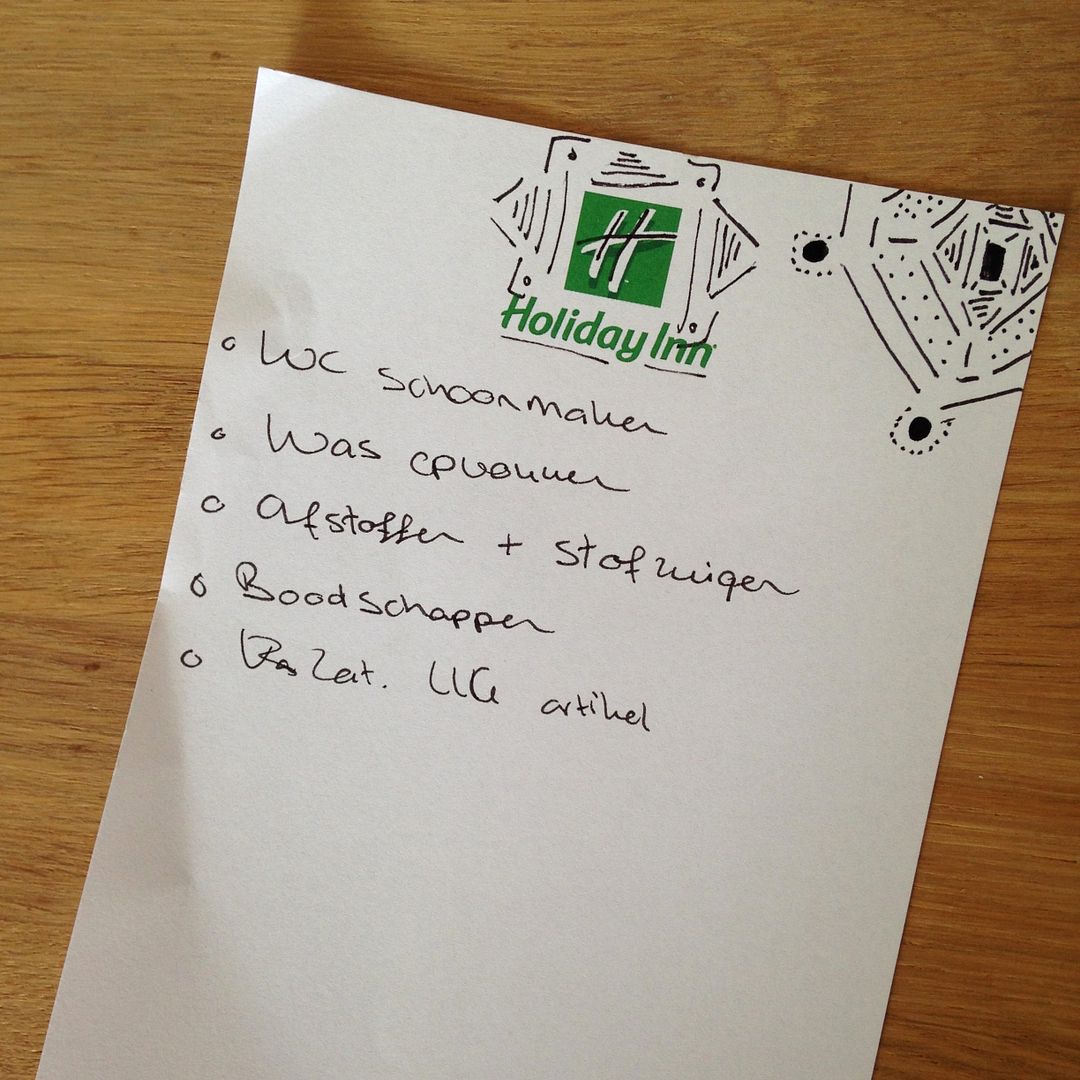 Holiday Inn
WC schoonmaken
Was opvouwen
Afstoffen + stofzuigen
Boodschappen
artikel